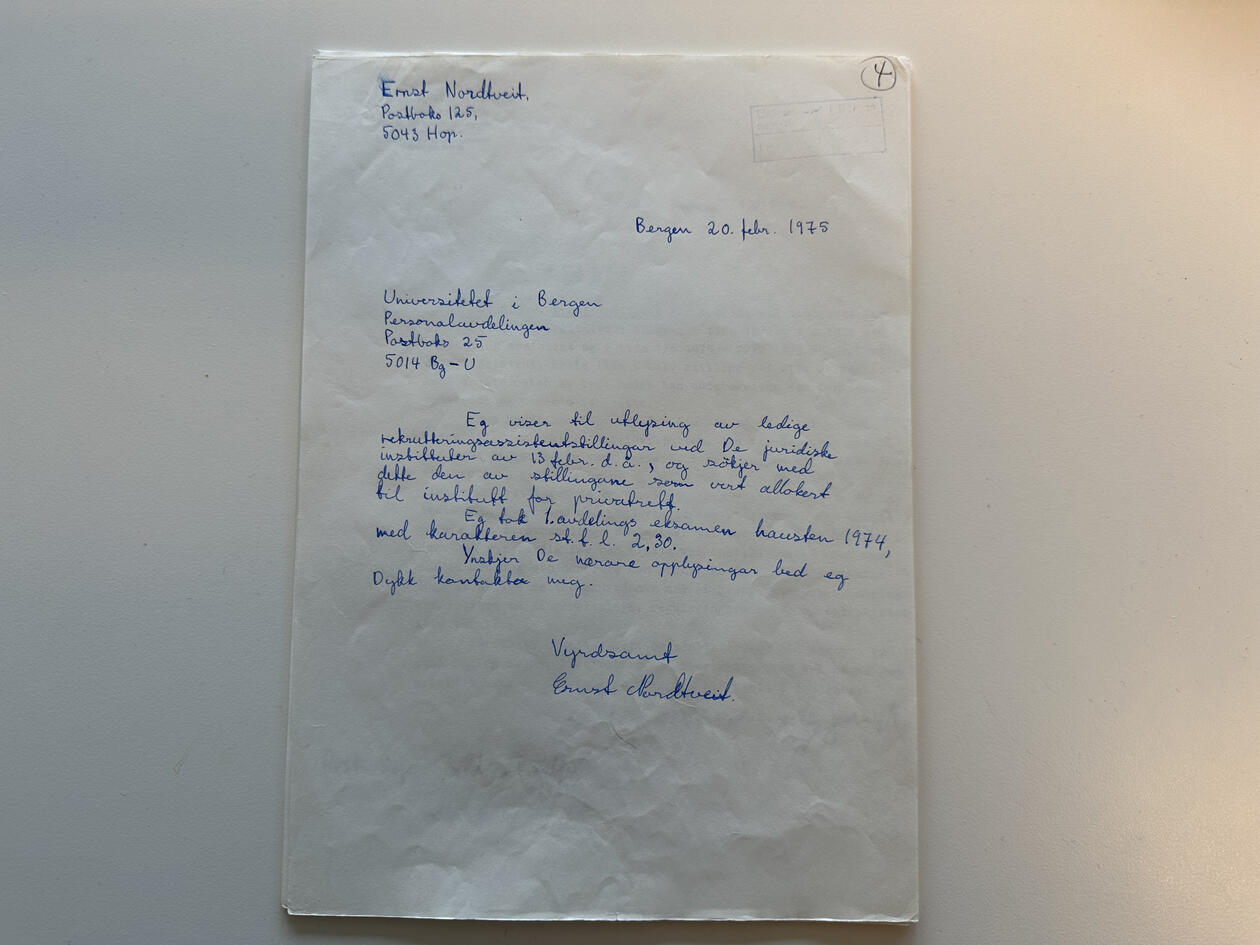 4
Ernst Nordtveit.
Postboks 125,
5043 Hop.
Bergen 20. febr. 1975
Universitetet i Bergen
Personalavdelingen
Postboks 25
5014 Bg-U
Eg viser til utlysing av ledige
rekrutteringsassistentstillingar ved De juridiske
institutter av 13 febr. d.å., og søkjer med
dette den av stillingane som vert allokert
til institutt for privatrett.
Eg tok 1. avdelings eksamen hausten 1974,
med karakteren st. f. l. 2,30.
Ynskjer De nærare opplysingar bed eg
Dykk kontakta meg.
Vyrdsamt
Ernst Nordtveit.